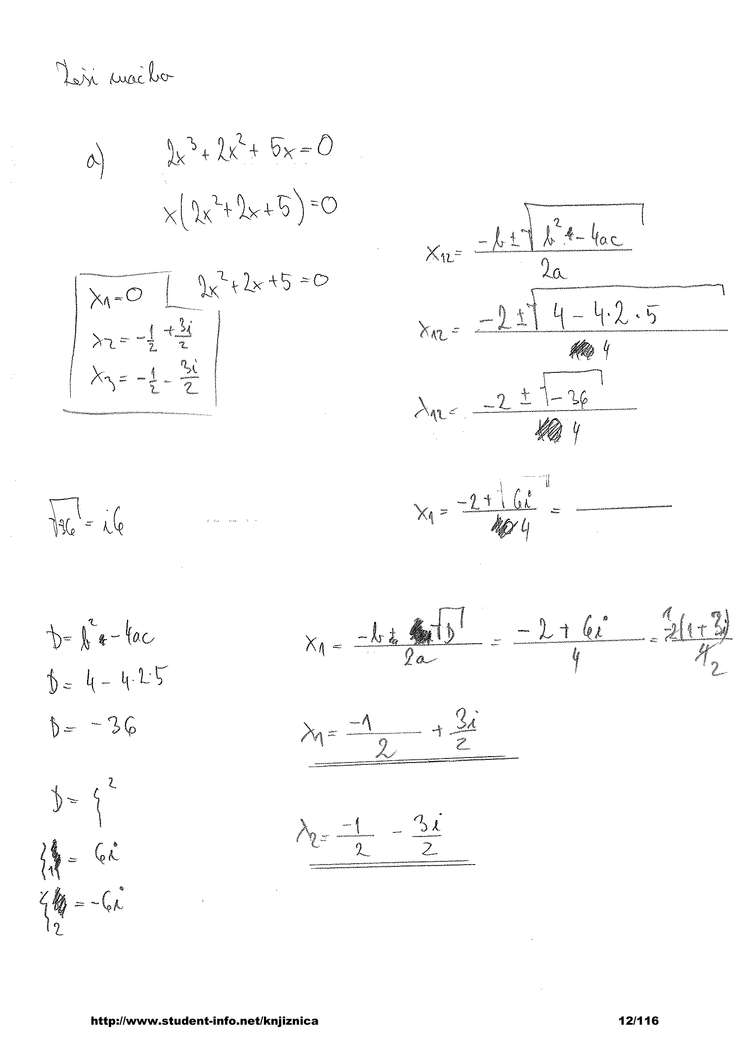 a) 2x³ + 2x² + 5x = 0
x(2x² + 2x + 5) = 0
2x² + 2x + 5 = 0
x₁ = 0
x₂ = -1/2 + 3i/2
x₃ = -1/2 - 3i/2
x₁₂ = (-b ± √(b² - 4ac)) / 2a
x₁₂ = (-2 ± √(4 - 4·2·5)) / 4
x₁₂ = (-2 ± √(-36)) / 4
x₁ = (-2 + 6i) / 4 =
√36 = i6
D = b² - 4ac
D = 4 - 4·2·5
D = -36
D = ξ²
ξ₁ = 6i
ξ₂ = -6i
x₁ = (-b ± √D) / 2a = (-2 + 6i) / 4
x₁ = -1/2 + 3i/2
x₂ = -1/2 - 3i/2
http://www.student-info.net/knjiznica 12/116